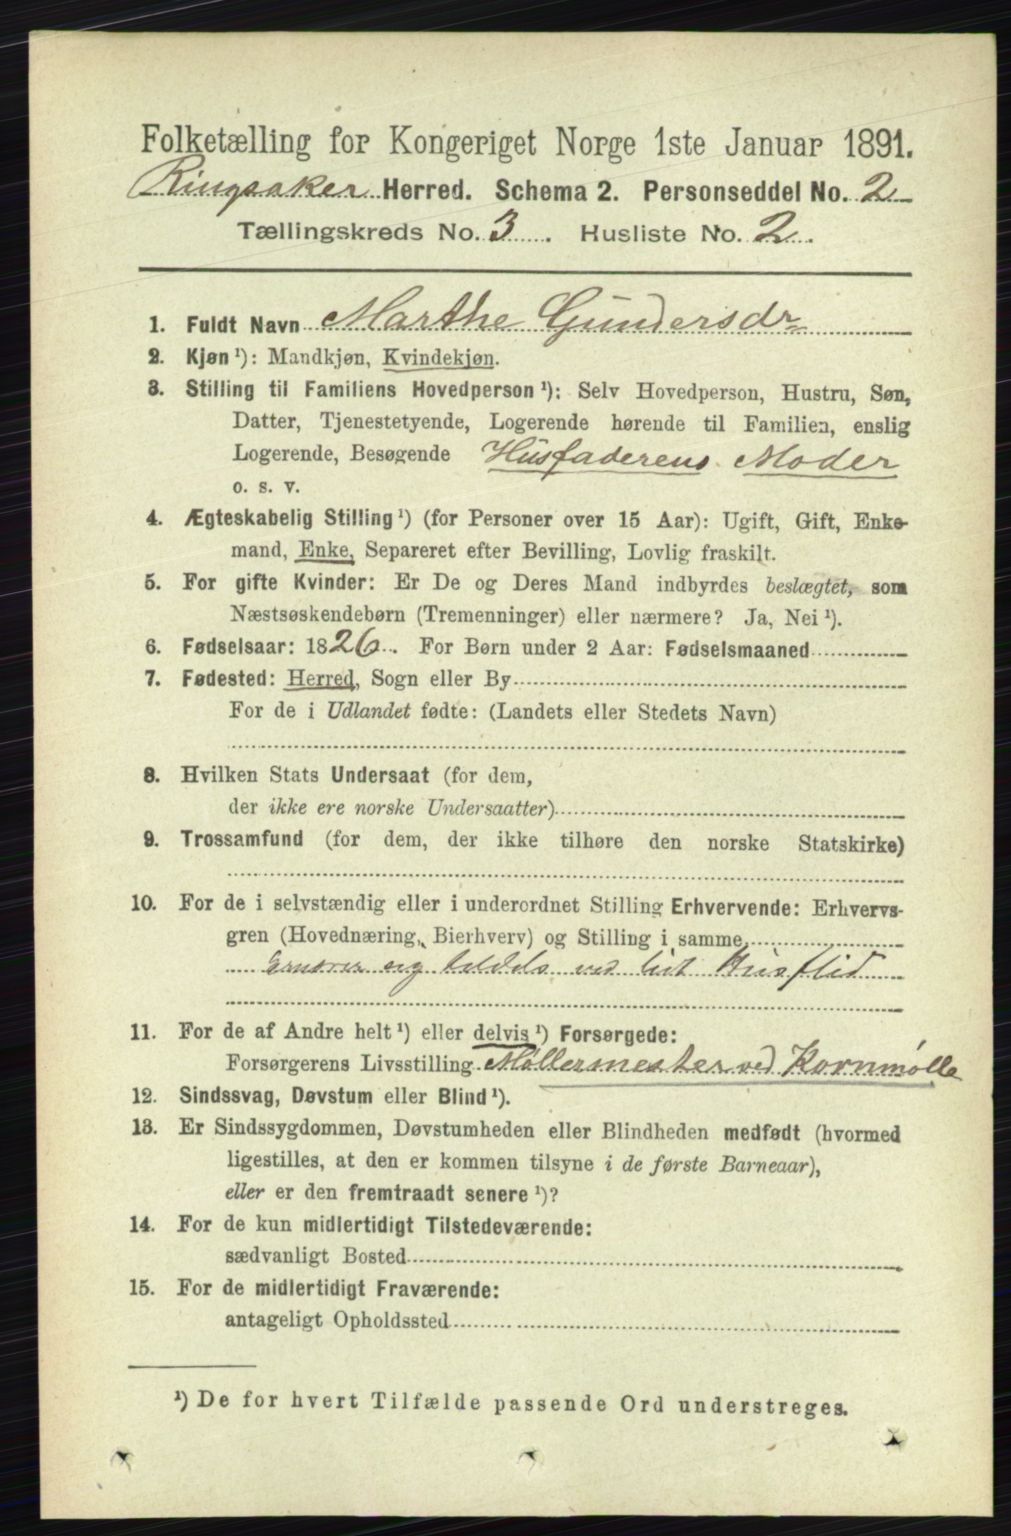 Folketælling for Kongeriget Norge 1ste Januar 1891.
Ringsaker Herred. Schema 2. Personseddel No. 2
Tællingskreds No. 3. Husliste No. 2.
1. Fuldt Navn Marthe Gundersdr
2. Kjøn ¹): Mandkjøn, Kvindekjøn.
3. Stilling til Familiens Hovedperson ¹): Selv Hovedperson, Hustru, Søn,
Datter, Tjenestetyende, Logerende hørende til Familien, enslig
Logerende, Besøgende Husfaderens Moder
o. s. v.
4. Ægteskabelig Stilling ¹) (for Personer over 15 Aar): Ugift, Gift, Enke-
mand, Enke, Separeret efter Bevilling, Lovlig fraskilt.
5. For gifte Kvinder: Er De og Deres Mand indbyrdes beslægtet, som
Næstsøskendebørn (Tremenninger) eller nærmere? Ja, Nei ¹).
6. Fødselsaar: 1826. For Børn under 2 Aar: Fødselsmaaned
7. Fødested: Herred, Sogn eller By
For de i Udlandet fødte: (Landets eller Stedets Navn)
8. Hvilken Stats Undersaat (for dem,
der ikke ere norske Undersaatter)
9. Trossamfund (for dem, der ikke tilhøre den norske Statskirke)
10. For de i selvstændig eller i underordnet Stilling Erhvervende: Erhvervs-
gren (Hovednæring, Bierhverv) og Stilling i samme
Ernærer sig deldels ved lidt Husflid
11. For de af Andre helt ¹) eller delvis ¹) Forsørgede:
Forsørgerens Livsstilling Møllermester ved Kornmølle
12. Sindssvag, Døvstum eller Blind ¹).
13. Er Sindssygdommen, Døvstumheden eller Blindheden medfødt (hvormed
ligestilles, at den er kommen tilsyne i de første Barneaar),
eller er den fremtraadt senere ¹)?
14. For de kun midlertidigt Tilstedeværende:
sædvanligt Bosted
15. For de midlertidigt Fraværende:
antageligt Opholdssted
¹) De for hvert Tilfælde passende Ord understreges.